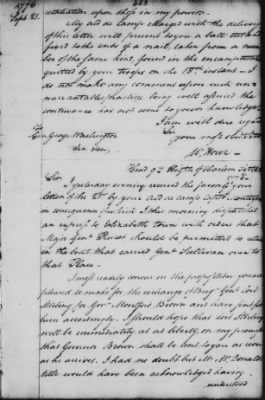 1776
Sept. 21.
retaliation upon those in my power.
My Aid de Camp charged with the delivery
of this letter will present to you a ball cut and
fixed to the ends of a nail, taken from a number
of the same kind, found in the encampments
quitted by your troops on the 15th instant. I
do not make any comment upon such unwarrantable
practices, being well assured the
contrivance has not come to your knowledge.
I am with due regard
Sir
your most obedt
Genl George Washington
W. Howe
Head Qrs Heights of Harlem
Sir
I yesterday evening received the favor of your
letter of the by your Aid de Camp
consequence of which I this morning dispatched
an express to Elizabeth Town with orders that
Major Genl should be permitted to return
in the boat that carried Genl Sullivan over to
that Place.
I most readily concur in the proposition you are
pleased to make for the exchange of Brigr Genl Lord
Stirling for Govr Montfort Brown and have
accordingly. I should hope that Lord Stirling
will be immediately set at liberty, on my promise
that Governor Brown shall be sent to you as soon
as he arrives. I had no doubt but Mr McDonald's
title would have been acknowledged having
understood